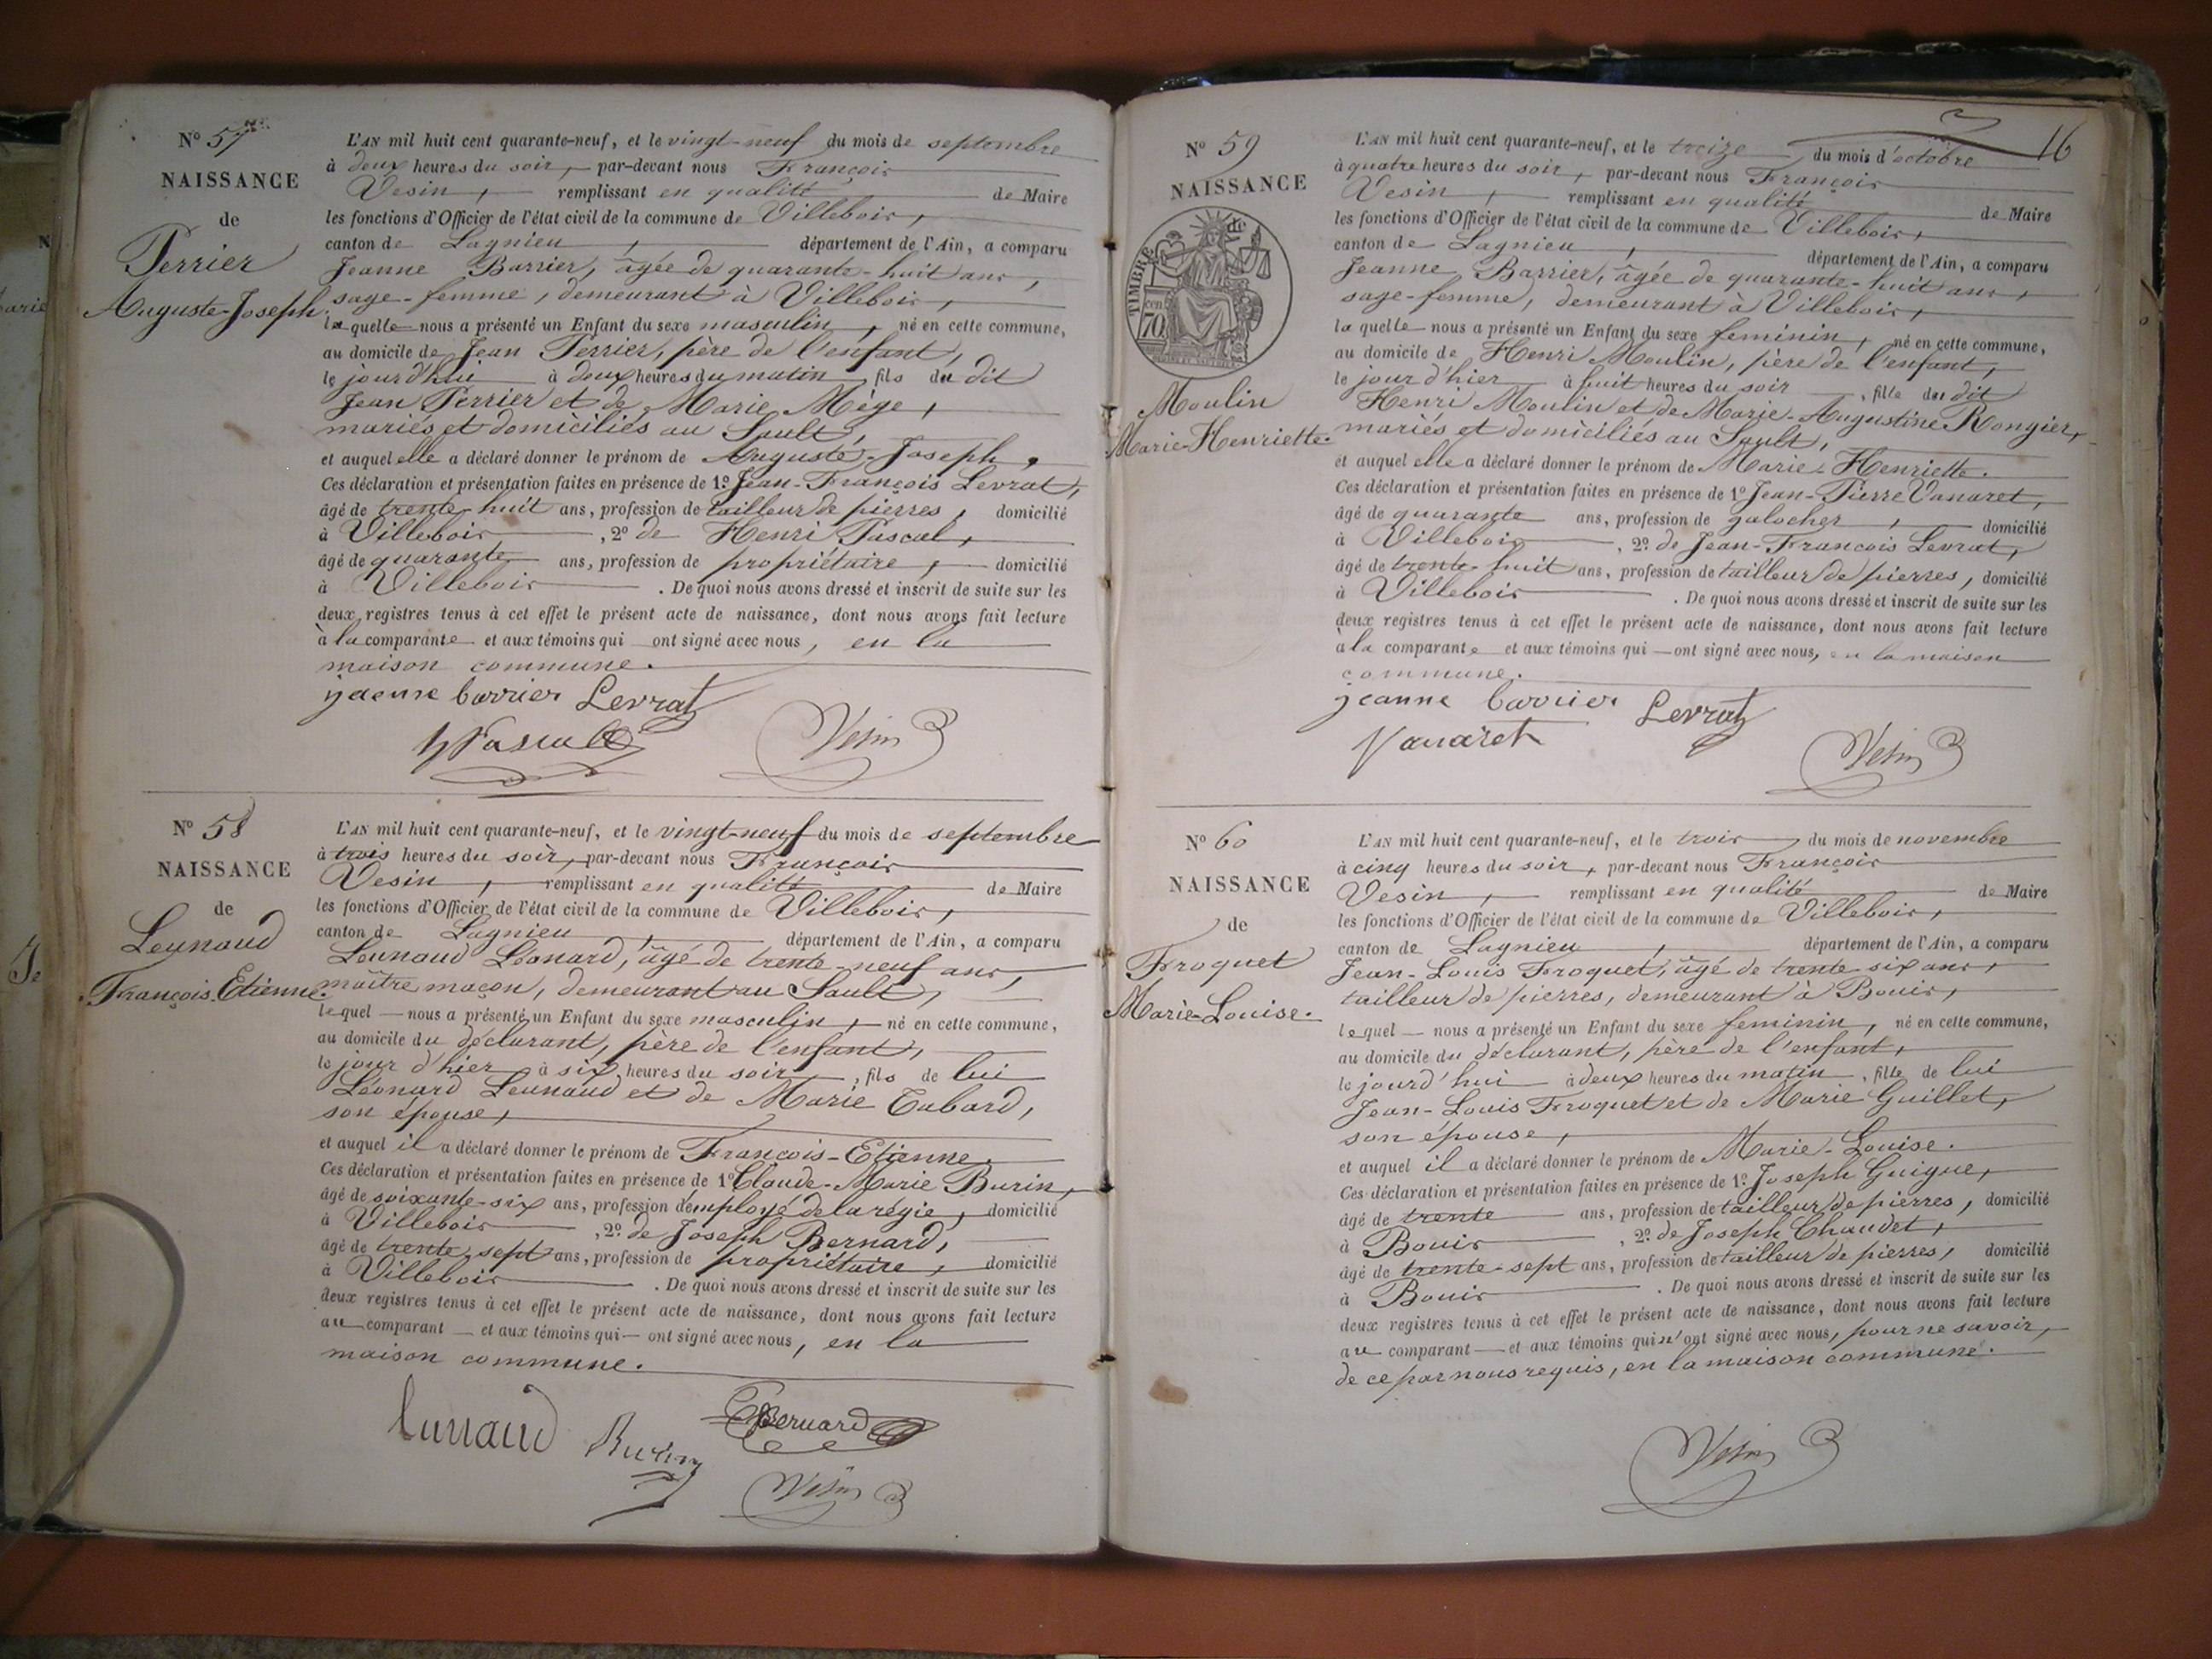 N° 57
NAISSANCE
de
Perrier
Auguste-Joseph.
L'AN mil huit cent quarante-neuf, et le vingt-neuf du mois de septembre
à deux heures du soir, par-devant nous François
Vesin, remplissant en qualité de Maire
les fonctions d'Officier de l'état civil de la commune de Villebois,
canton de Lagnieu, département de l'Ain, a comparu
Jeanne Barrier, âgée de quarante-huit ans,
sage-femme, demeurant à Villebois,
laquelle nous a présenté un Enfant du sexe masculin, né en cette commune,
au domicile de Jean Perrier, père de l'enfant,
le jourd'hui à deux heures du matin, fils du dit
Jean Perrier et de Marie Mège,
mariés et domiciliés au Sault,
et auquel elle a déclaré donner le prénom de Auguste-Joseph,
Ces déclaration et présentation faites en présence de 1° Jean-François Levrat,
âgé de trente-huit ans, profession de tailleur de pierres, domicilié
à Villebois, 2° de Henri Pascal,
âgé de quarante ans, profession de propriétaire, domicilié
à Villebois. De quoi nous avons dressé et inscrit de suite sur les
deux registres tenus à cet effet le présent acte de naissance, dont nous avons fait lecture
à la comparante et aux témoins qui ont signé avec nous, en la
maison commune.
jeanne barrier Levrat
h Pascal Vesin
N° 58
NAISSANCE
de
Leunaud
François Etienne.
L'AN mil huit cent quarante-neuf, et le vingt-neuf du mois de septembre
à trois heures du soir, par-devant nous François
Vesin, remplissant en qualité de Maire
les fonctions d'Officier de l'état civil de la commune de Villebois,
canton de Lagnieu, département de l'Ain, a comparu
Leunaud Léonard, âgé de trente-neuf ans,
maître maçon, demeurant au Sault,
lequel nous a présenté un Enfant du sexe masculin, né en cette commune,
au domicile du déclarant, père de l'enfant,
le jour d'hier à six heures du soir, fils de lui
Léonard Leunaud et de Marie Tabard,
son épouse,
et auquel il a déclaré donner le prénom de François-Etienne.
Ces déclaration et présentation faites en présence de 1° Claude-Marie Burin,
âgé de soixante-six ans, profession d'employé de la régie, domicilié
à Villebois, 2° de Joseph Bernard,
âgé de trente-sept ans, profession de propriétaire, domicilié
à Villebois. De quoi nous avons dressé et inscrit de suite sur les
deux registres tenus à cet effet le présent acte de naissance, dont nous avons fait lecture
au comparant et aux témoins qui ont signé avec nous, en la
maison commune.
Lunaud Burin Bernard
Vesin
16
N° 59
NAISSANCE
de
TIMBRE
cen
70
Moulin
Marie-Henriette.
L'AN mil huit cent quarante-neuf, et le treize du mois d'octobre
à quatre heures du soir, par-devant nous François
Vesin, remplissant en qualité de Maire
les fonctions d'Officier de l'état civil de la commune de Villebois,
canton de Lagnieu, département de l'Ain, a comparu
Jeanne Barrier, âgée de quarante-huit ans,
sage-femme, demeurant à Villebois,
laquelle nous a présenté un Enfant du sexe feminin, né en cette commune,
au domicile de Henri Moulin, père de l'enfant,
le jour d'hier à huit heures du soir, fille du dit
Henri Moulin et de Marie-Augustine Rongier,
mariés et domiciliés au Sault,
et auquel elle a déclaré donner le prénom de Marie-Henriette.
Ces déclaration et présentation faites en présence de 1° Jean-Pierre Vanaret,
âgé de quarante ans, profession de galocher, domicilié
à Villebois, 2° de Jean-François Levrat,
âgé de trente-huit ans, profession de tailleur de pierres, domicilié
à Villebois. De quoi nous avons dressé et inscrit de suite sur les
deux registres tenus à cet effet le présent acte de naissance, dont nous avons fait lecture
à la comparante et aux témoins qui ont signé avec nous, en la maison
commune.
jeanne barrier Levrat
Vanaret Vesin
N° 60
NAISSANCE
de
Froquet
Marie-Louise.
L'AN mil huit cent quarante-neuf, et le trois du mois de novembre
à cinq heures du soir, par-devant nous François
Vesin, remplissant en qualité de Maire
les fonctions d'Officier de l'état civil de la commune de Villebois,
canton de Lagnieu, département de l'Ain, a comparu
Jean-Louis Froquet, âgé de trente-six ans,
tailleur de pierres, demeurant à Bouis,
lequel nous a présenté un Enfant du sexe feminin, né en cette commune,
au domicile du déclarant, père de l'enfant,
le jourd'hui à deux heures du matin, fille de lui
Jean-Louis Froquet et de Marie Guillet,
son épouse,
et auquel il a déclaré donner le prénom de Marie-Louise.
Ces déclaration et présentation faites en présence de 1° Joseph Guigue,
âgé de trente ans, profession de tailleur de pierres, domicilié
à Bouis, 2° de Joseph Chaudet,
âgé de trente-sept ans, profession de tailleur de pierres, domicilié
à Bouis. De quoi nous avons dressé et inscrit de suite sur les
deux registres tenus à cet effet le présent acte de naissance, dont nous avons fait lecture
au comparant et aux témoins qui n'ont signé avec nous, pour ne savoir,
de ce par nous requis, en la maison commune.
Vesin